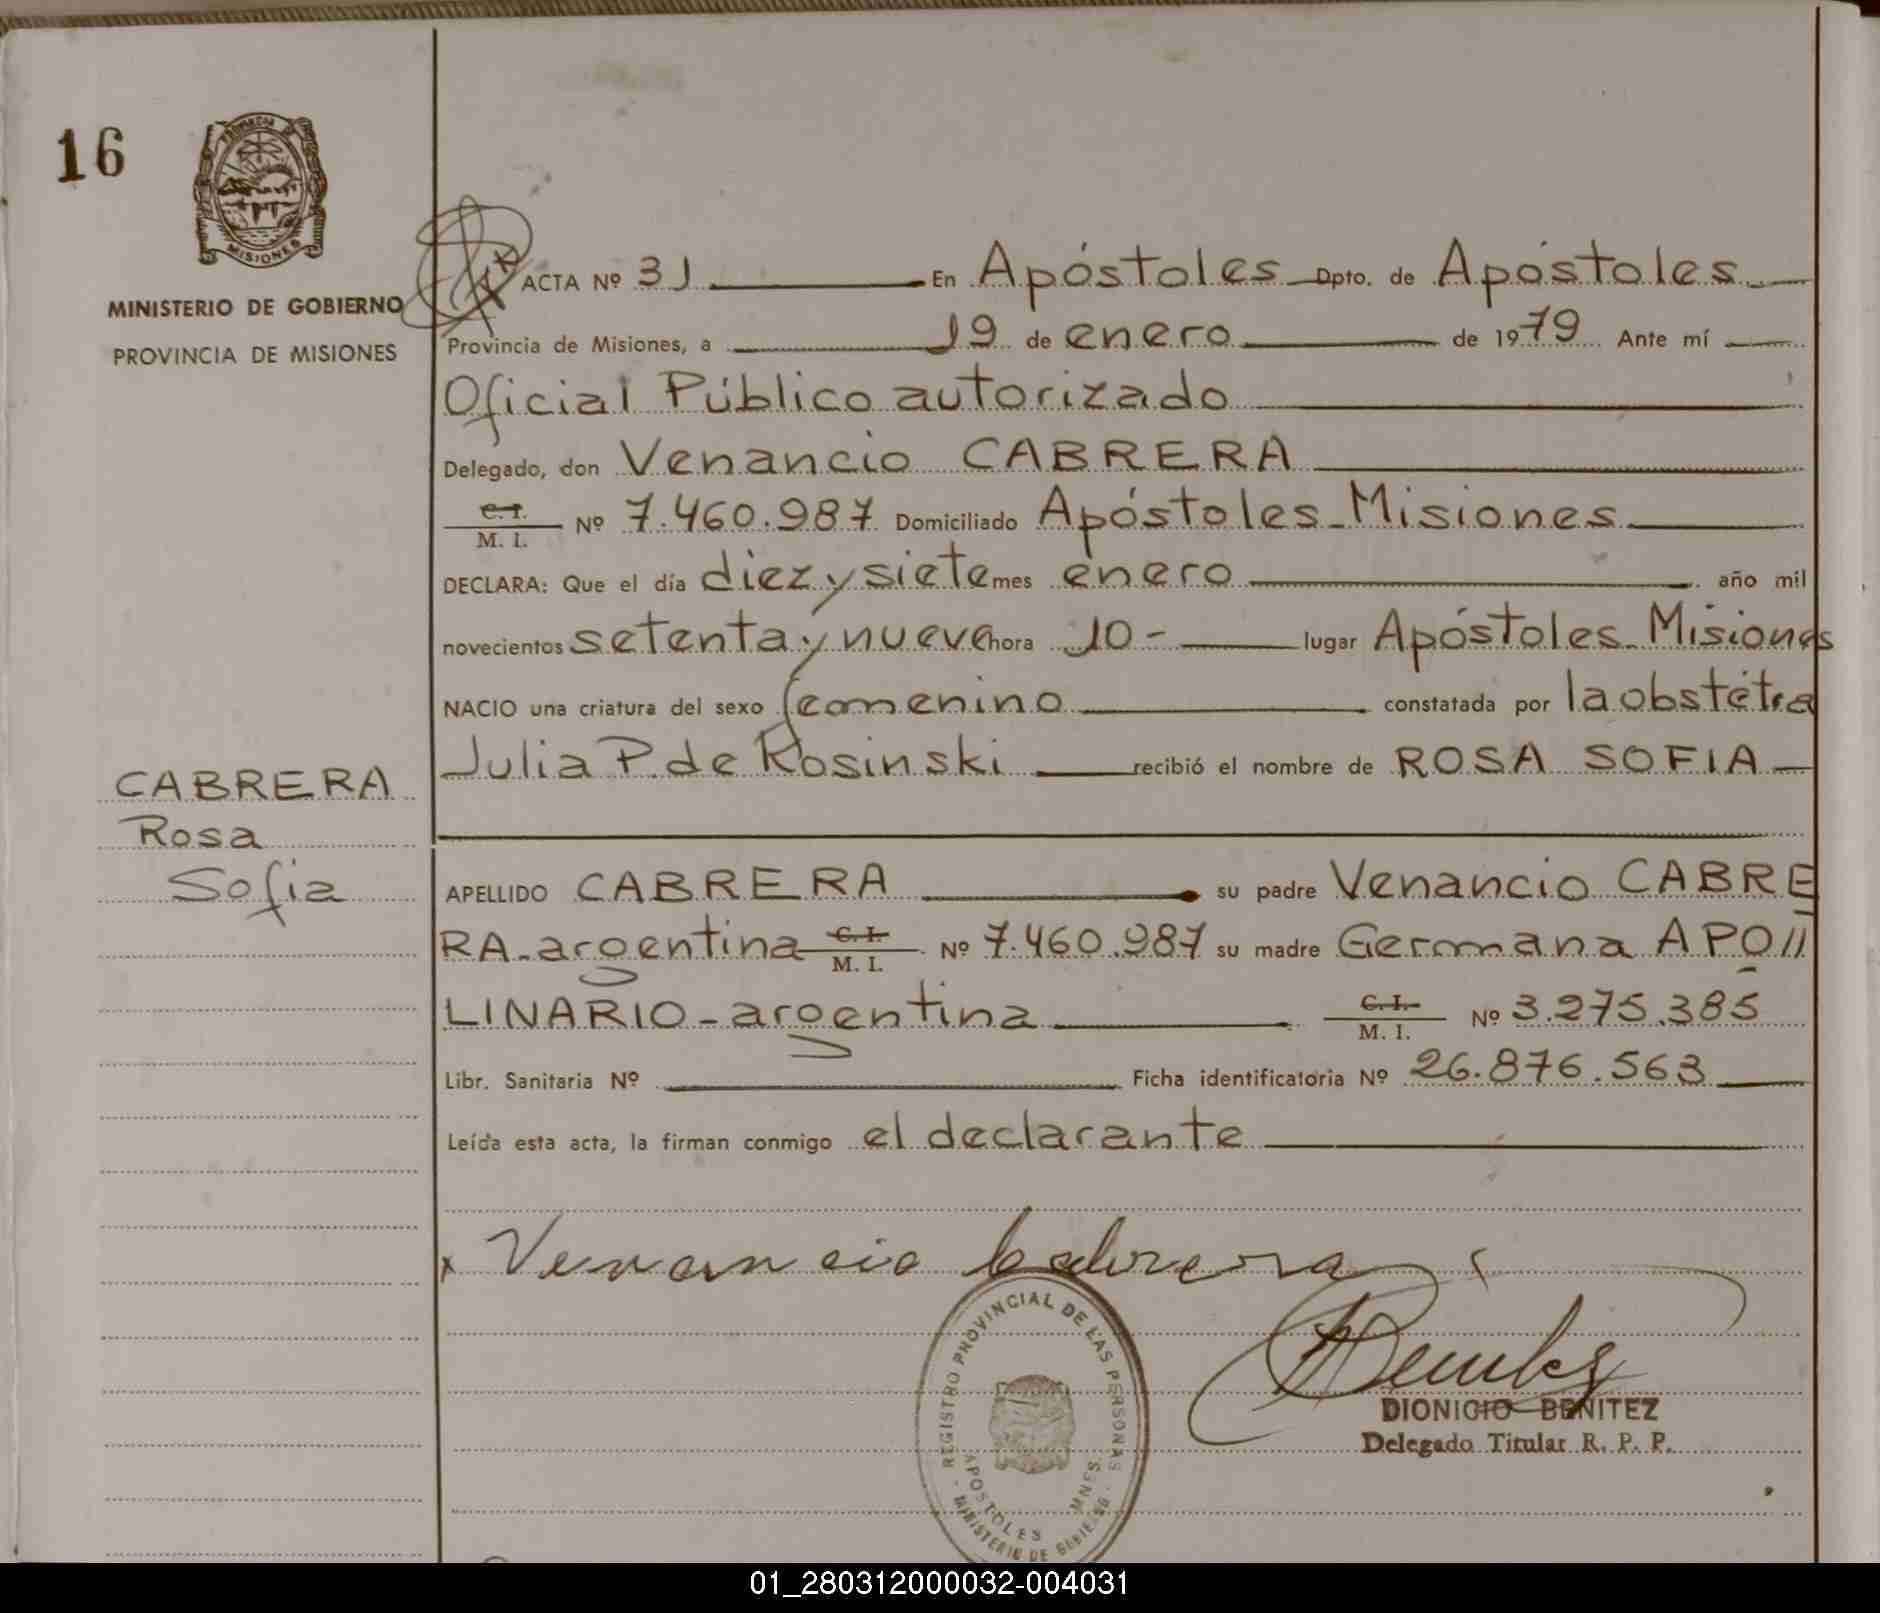 16
PROVINCIA DE
MISIONES
MINISTERIO DE GOBIERNO
PROVINCIA DE MISIONES
ACTA Nº 31 En Apóstoles Dpto. de Apóstoles
Provincia de Misiones, a 19 de enero de 1979 Ante mí
Oficial Público autorizado
Delegado, don Venancio CABRERA
C. I.
M. I. Nº 7.460.987 Domiciliado Apóstoles-Misiones
DECLARA: Que el día diez y siete mes enero año mil
novecientos setenta y nueve hora 10- lugar Apóstoles-Misiones
NACIO una criatura del sexo femenino constatada por la obstétra
Julia P. de Rosinski recibió el nombre de ROSA SOFIA
CABRERA
Rosa
Sofia
APELLIDO CABRERA su padre Venancio CABRE
RA-argentina C. I. M. I. Nº 7.460.987 su madre Germana APO//
LINARIO-argentina C. I. M. I. Nº 3.275.385
Libr. Sanitaria Nº Ficha identificatoria Nº 26.876.563
Leída esta acta, la firman conmigo el declarante
x Venancio Cabrera
REGISTRO PROVINCIAL DE LAS PERSONAS
APOSTOLES MNES.
- MINISTERIO DE GOBIERNO -
DIONICIO BENITEZ
Delegado Titular R. P. P.
01_280312000032-004031